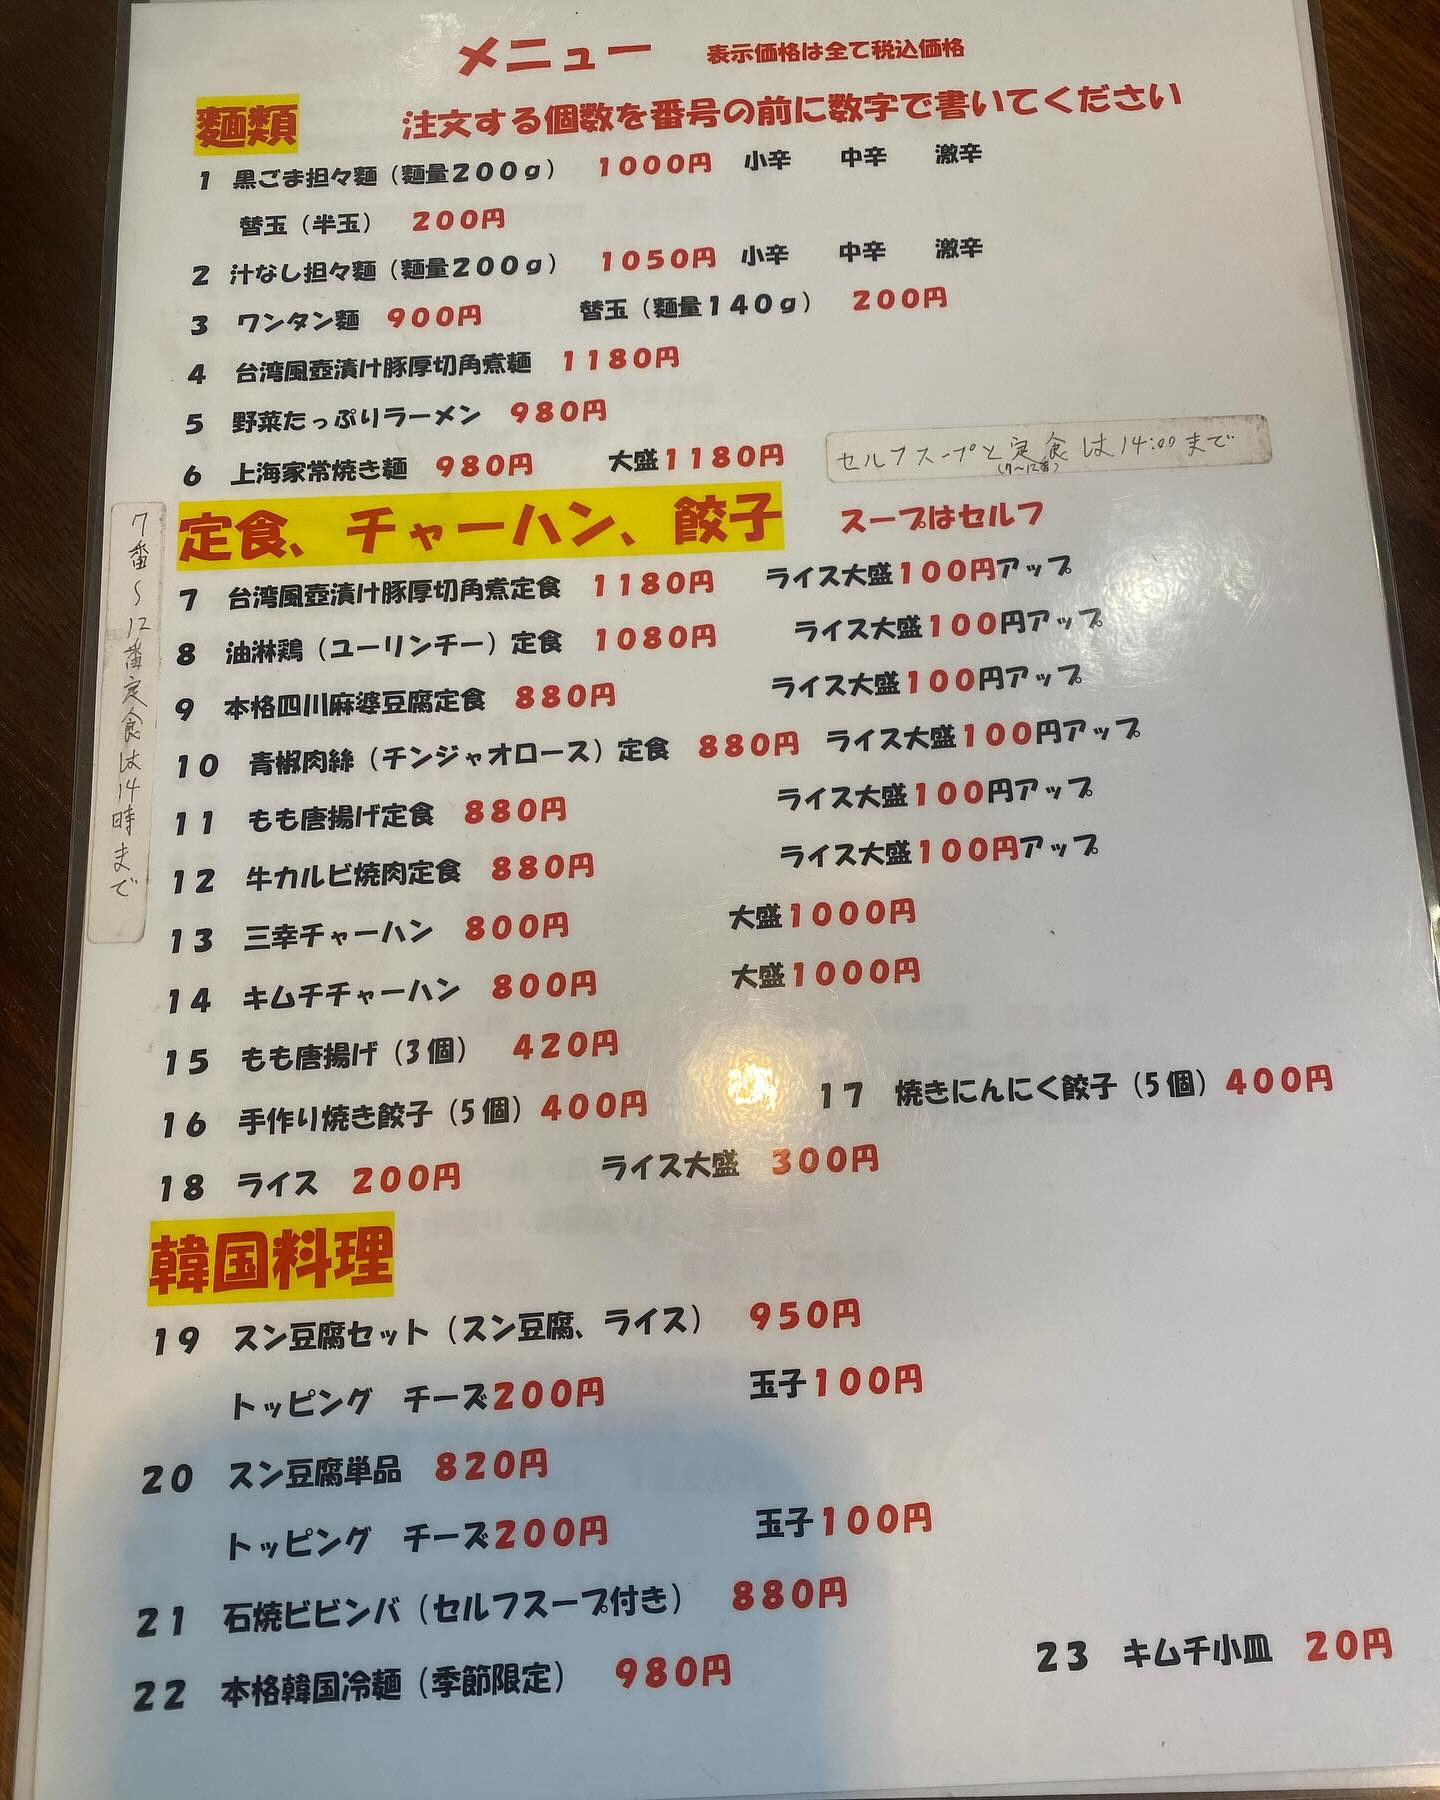 メニュー 表示価格は全て税込価格
麵類 注文する個数を番号の前に数字で書いてください
1 黒ごま担々麵（麵量200g） 1000円 小辛 中辛 激辛
替玉（半玉） 200円
2 汁なし担々麵（麵量200g） 1050円 小辛 中辛 激辛
3 ワンタン麵 900円 替玉（麵量140g） 200円
4 台湾風壺漬け豚厚切角煮麵 1180円
5 野菜たっぷりラーメン 980円
6 上海家常焼き麵 980円 大盛1180円
セルフスープと定食は14:00まで
(7〜12番)
7番〜12番定食は14時まで
定食、チャーハン、餃子 スープはセルフ
7 台湾風壺漬け豚厚切角煮定食 1180円 ライス大盛100円アップ
8 油淋鶏（ユーリンチー）定食 1080円 ライス大盛100円アップ
9 本格四川麻婆豆腐定食 880円 ライス大盛100円アップ
10 青椒肉絲（チンジャオロース）定食 880円 ライス大盛100円アップ
11 もも唐揚げ定食 880円 ライス大盛100円アップ
12 牛カルビ焼肉定食 880円 ライス大盛100円アップ
13 三幸チャーハン 800円 大盛1000円
14 キムチチャーハン 800円 大盛1000円
15 もも唐揚げ（3個） 420円
16 手作り焼き餃子（5個）400円 17 焼きにんにく餃子（5個）400円
18 ライス 200円 ライス大盛 300円
韓国料理
19 スン豆腐セット（スン豆腐、ライス） 950円
トッピング チーズ200円 玉子100円
20 スン豆腐単品 820円
トッピング チーズ200円 玉子100円
21 石焼ビビンバ（セルフスープ付き） 880円
22 本格韓国冷麵（季節限定） 980円 23 キムチ小皿 20円